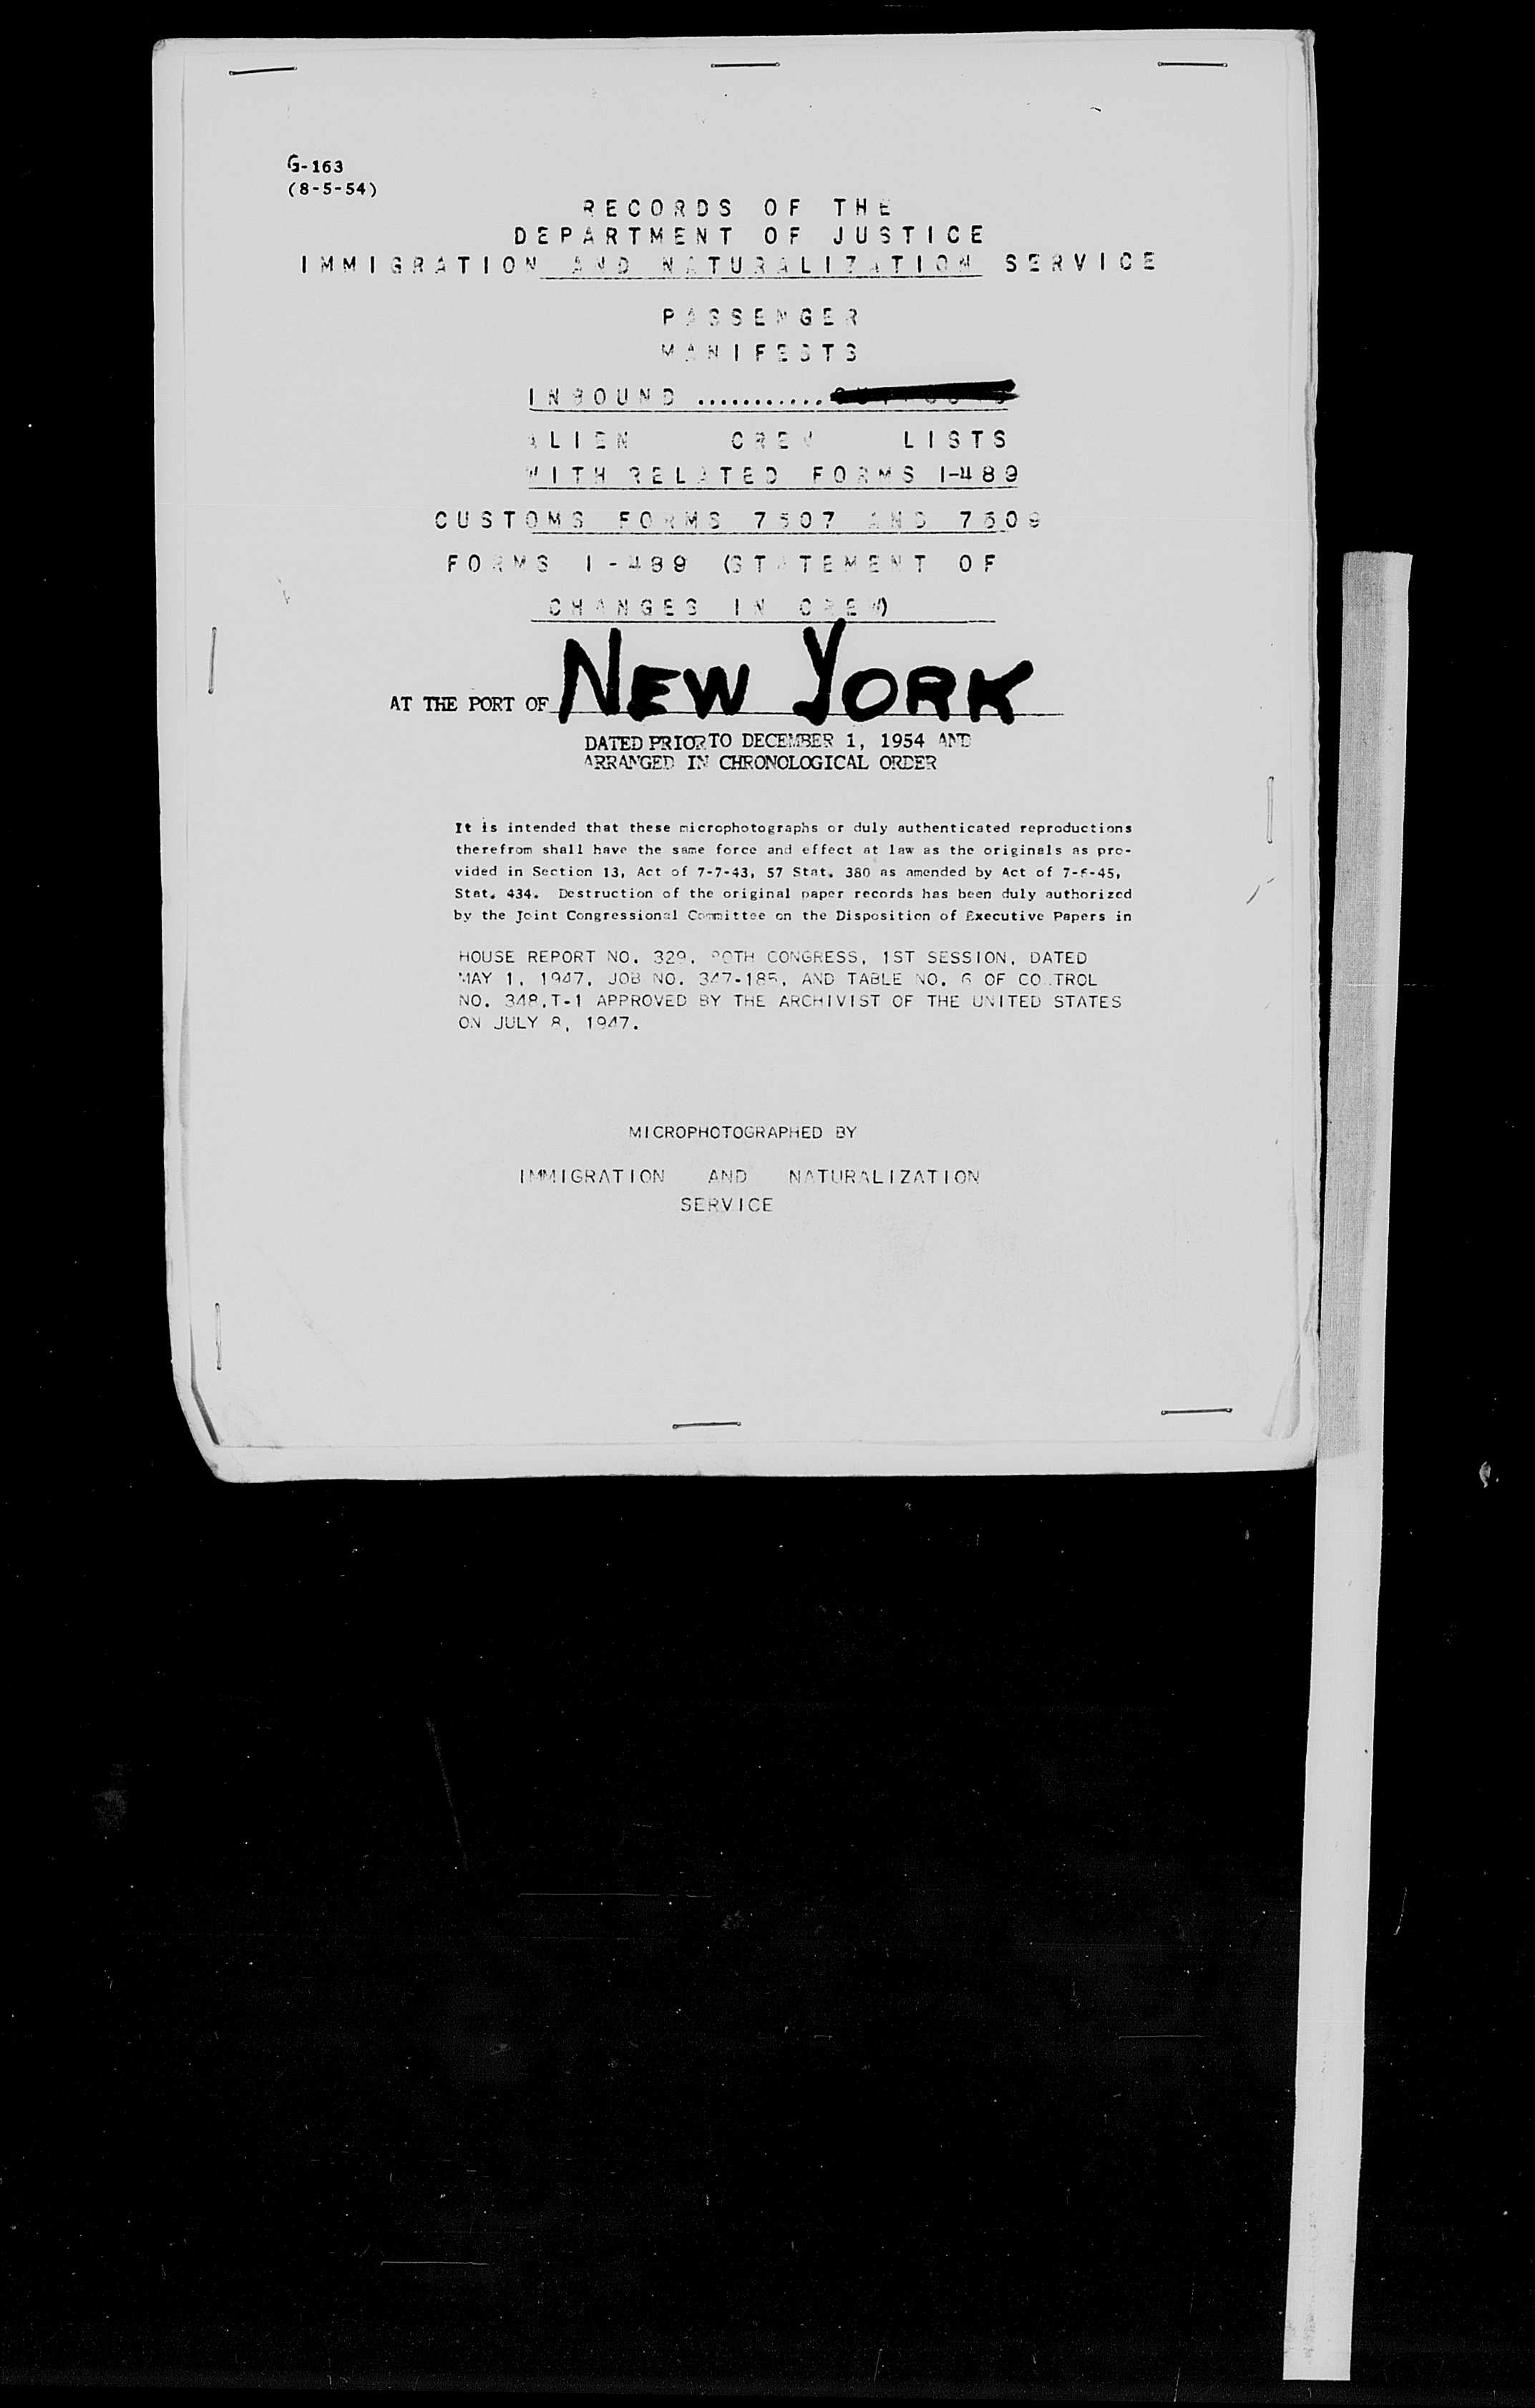 G-163
(8-5-54)
RECORDS OF THE
DEPARTMENT OF JUSTICE
IMMIGRATION AND NATURALIZATION SERVICE
PASSENGER
MANIFESTS
INBOUND ...........
ALIEN CREW LISTS
WITH RELATED FORMS I-489
CUSTOMS FORMS 7507 AND 7509
FORMS I-489 (STATEMENT OF
CHANGES IN CREW)
AT THE PORT OF NEW YORK
DATED PRIOR TO DECEMBER 1, 1954 AND
ARRANGED IN CHRONOLOGICAL ORDER
It is intended that these microphotographs or duly authenticated reproductions
therefrom shall have the same force and effect at law as the originals as pro-
vided in Section 13, Act of 7-7-43, 57 Stat. 380 as amended by Act of 7-6-45,
Stat. 434. Destruction of the original paper records has been duly authorized
by the Joint Congressional Committee on the Disposition of Executive Papers in
HOUSE REPORT NO. 329, 80TH CONGRESS, 1ST SESSION, DATED
MAY 1, 1947, JOB NO. 347-185, AND TABLE NO. 6 OF CONTROL
NO. 348,T-1 APPROVED BY THE ARCHIVIST OF THE UNITED STATES
ON JULY 8, 1947.
MICROPHOTOGRAPHED BY
IMMIGRATION AND NATURALIZATION
SERVICE